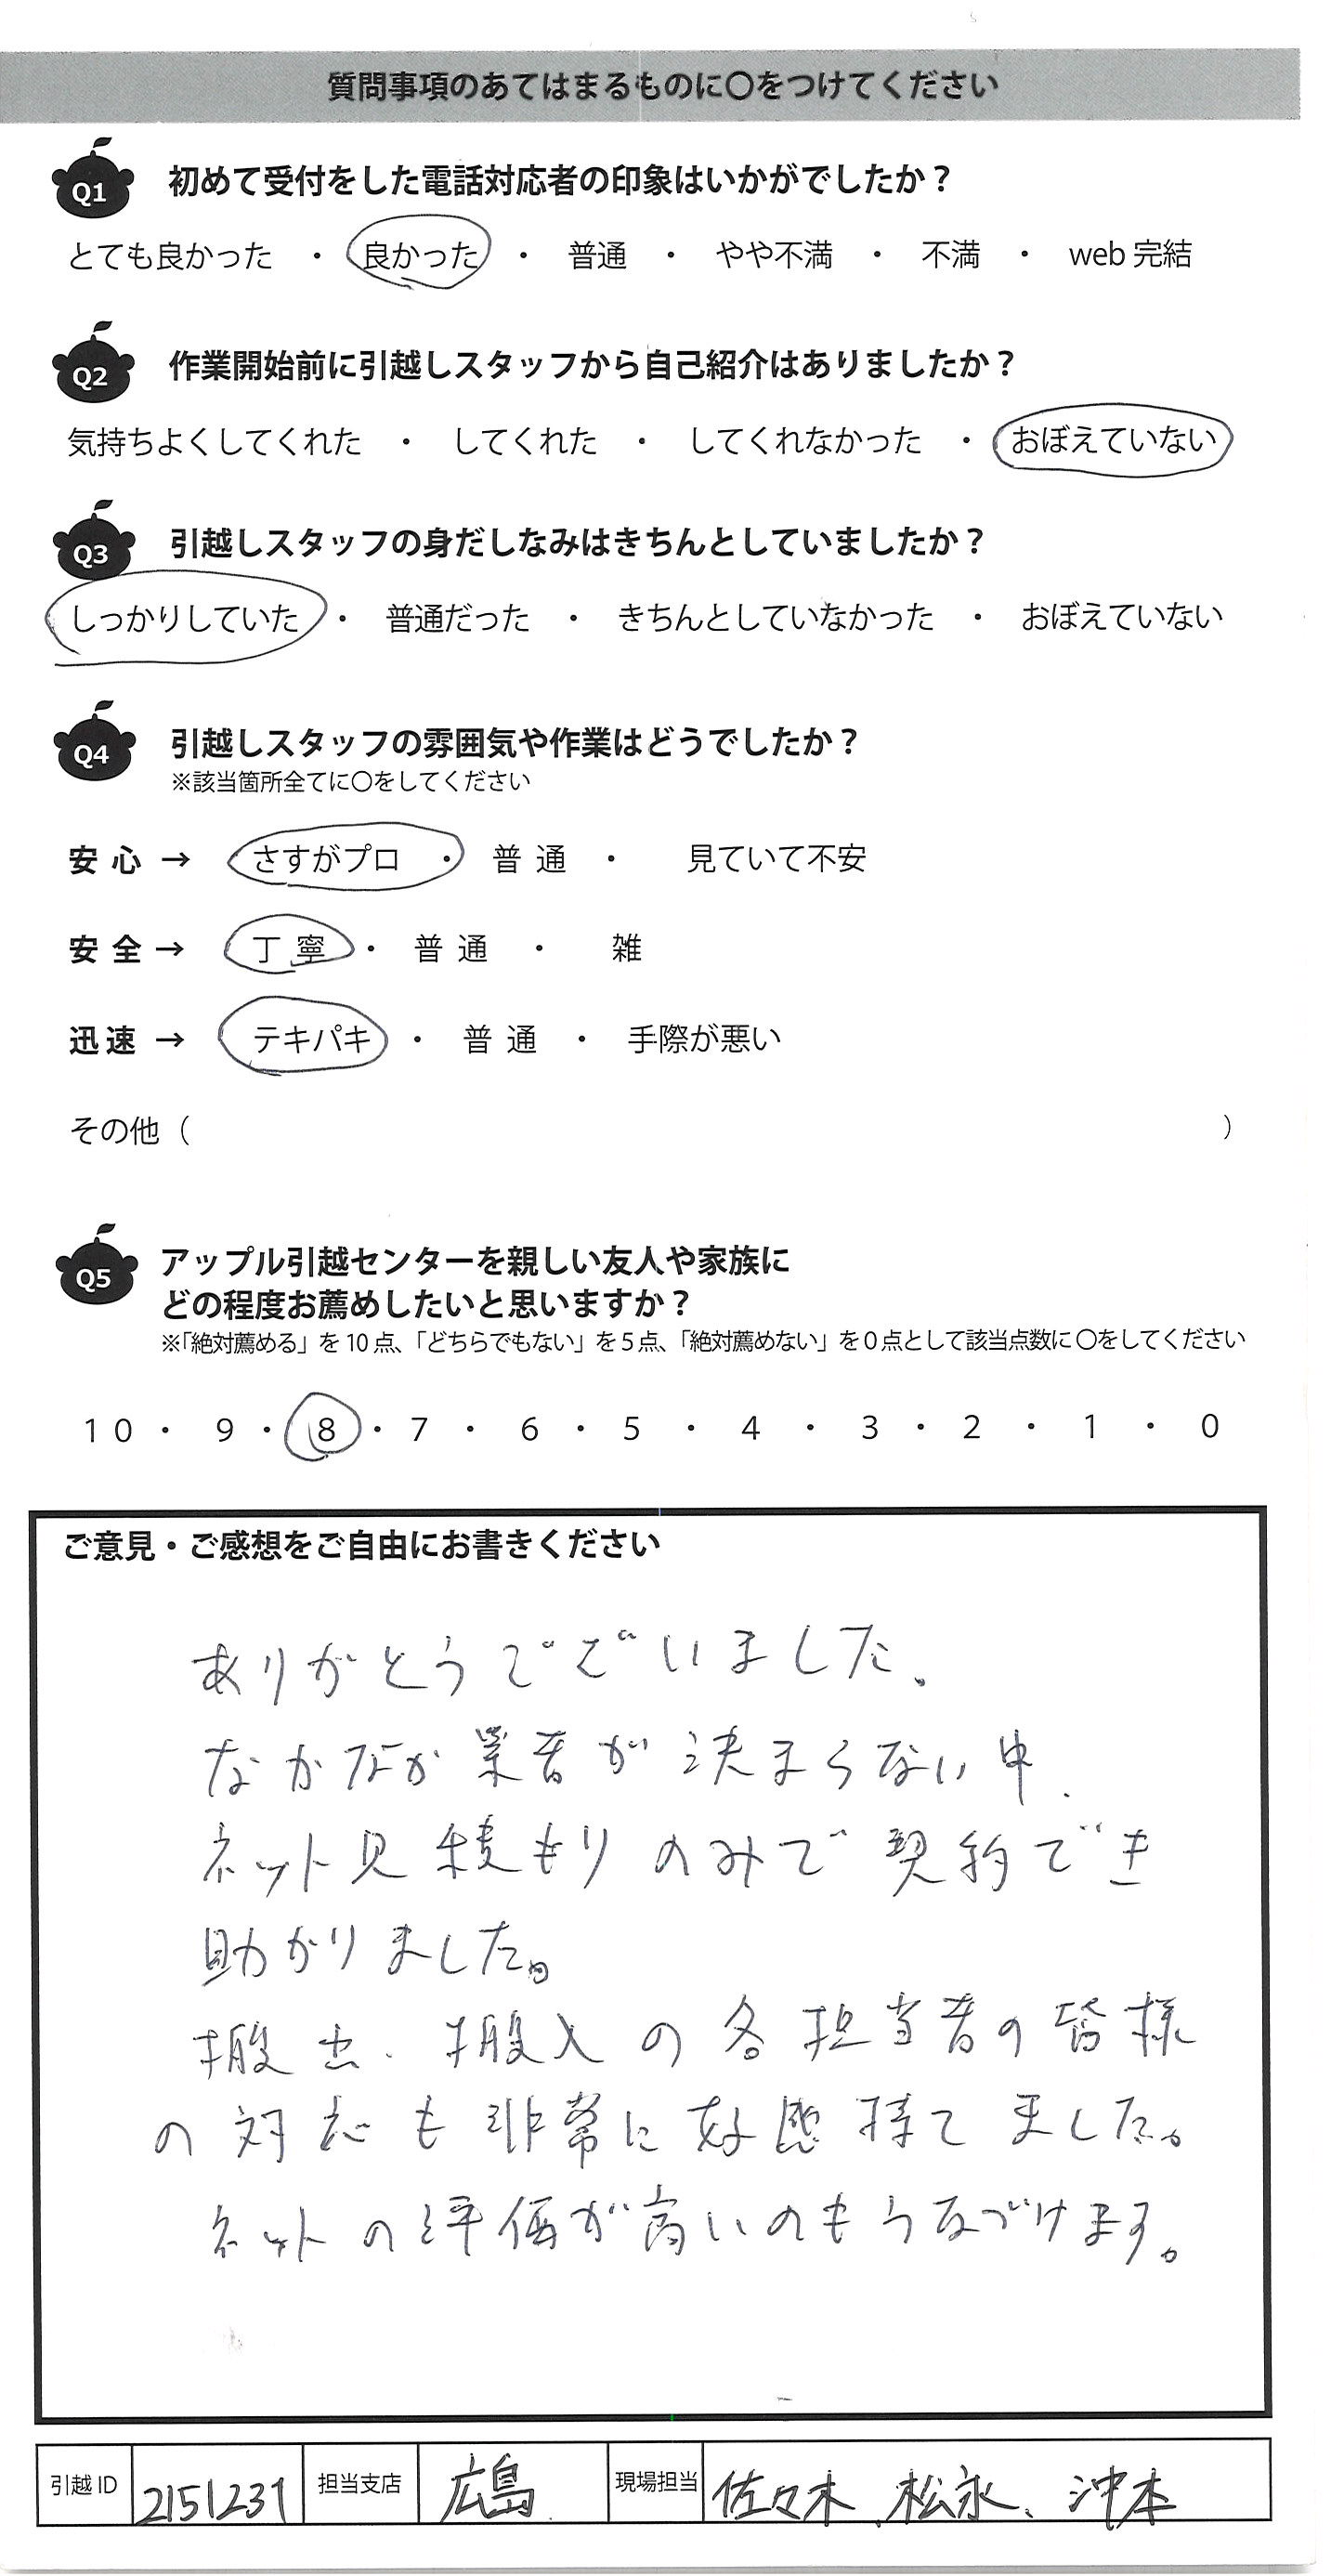 質問事項のあてはまるものに〇をつけてください
Q1 初めて受付をした電話対応者の印象はいかがでしたか？
とても良かった ・ 良かった ・ 普通 ・ やや不満 ・ 不満 ・ web 完結
Q2 作業開始前に引越しスタッフから自己紹介はありましたか？
気持ちよくしてくれた ・ してくれた ・ してくれなかった ・ おぼえていない
Q3 引越しスタッフの身だしなみはきちんとしていましたか？
しっかりしていた ・ 普通だった ・ きちんとしていなかった ・ おぼえていない
Q4 引越しスタッフの雰囲気や作業はどうでしたか？
※該当箇所全てに〇をしてください
安心 → さすがプロ ・ 普通 ・ 見ていて不安
安全 → 丁寧 ・ 普通 ・ 雑
迅速 → テキパキ ・ 普通 ・ 手際が悪い
その他（ ）
Q5 アップル引越センターを親しい友人や家族に
どの程度お薦めしたいと思いますか？
※「絶対薦める」を10点、「どちらでもない」を5点、「絶対薦めない」を0点として該当点数に〇をしてください
10 ・ 9 ・ 8 ・ 7 ・ 6 ・ 5 ・ 4 ・ 3 ・ 2 ・ 1 ・ 0
ご意見・ご感想をご自由にお書きください
ありがとうございました。
なかなか業者が決まらない中、
ネット見積もりのみで契約でき
助かりました。
搬出、搬入の各担当者の皆様
の対応も非常に好感持てました。
ネットの評価が高いのもうなづけます。
引越ID 2151231 担当支店 広島 現場担当 佐々木、松永、沖本